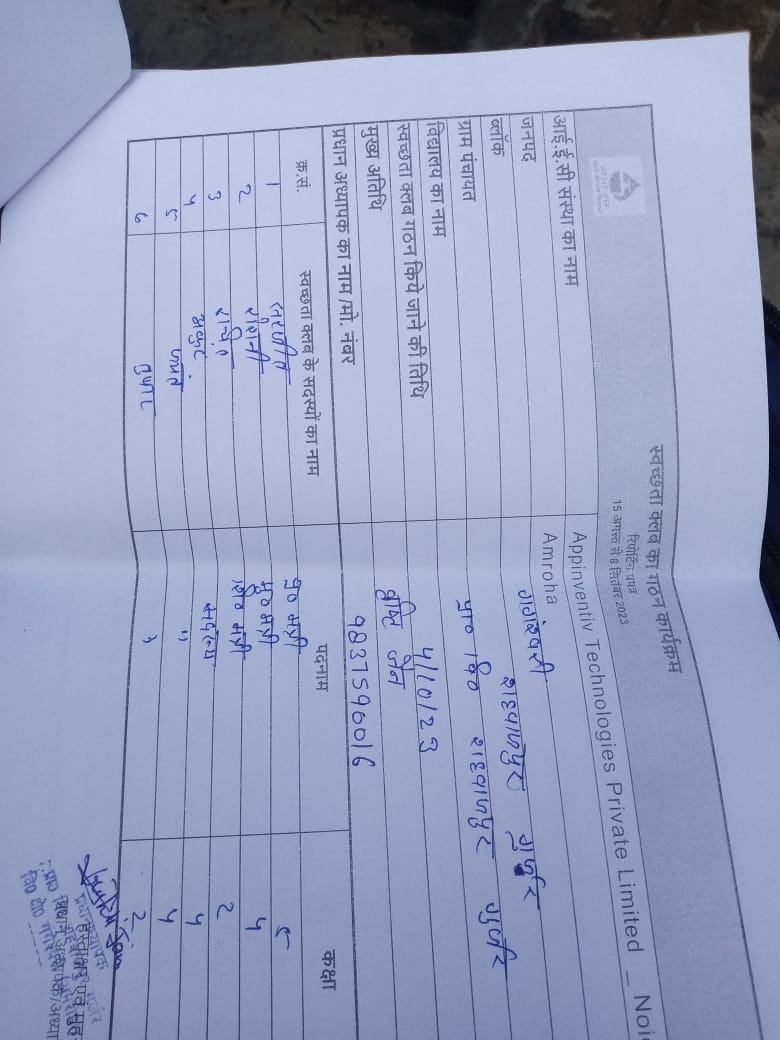 स्वच्छता क्लब का गठन कार्यक्रम
रिपोर्टिंग प्रपत्र
15 अगस्त से 8 सितंबर 2023
आई.ई.सी संस्था का नाम Appinventiv Technologies Private Limited _ Noi
जनपद Amroha
ब्लॉक गंगेश्वरी
ग्राम पंचायत शहवाजपुर गुर्जर
विद्यालय का नाम प्रा० वि० शहवाजपुर गुर्जर
स्वच्छता क्लब गठन किये जाने की तिथि 4/10/23
मुख्य अतिथि जैन
प्रधान अध्यापक का नाम /मो. नंबर 9837596016
क्र.सं. स्वच्छता क्लब के सदस्यों का नाम पदनाम कक्षा
1 प्र० मंत्री ५
2 रागिनी मंत्री 4
3 शि० मंत्री 2
4 अंकुर सदस्य 4
५ " 4
6 तुषार " 2
हस्ताक्षर एवं मुह
प्रधान अध्यापक/अध्या